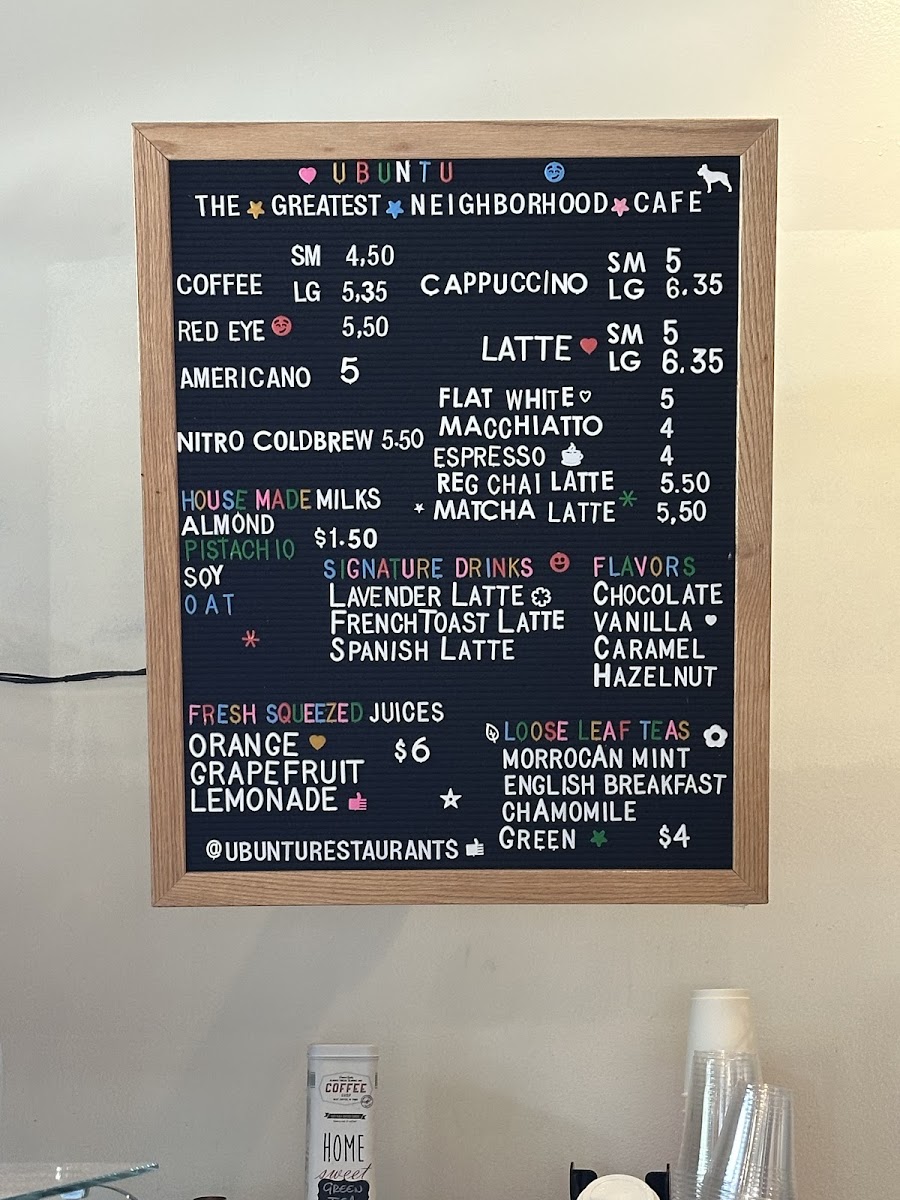 UBUNTU
THE GREATEST NEIGHBORHOOD CAFE
COFFEE SM 4,50
LG 5,35
RED EYE 5,50
AMERICANO 5
NITRO COLDBREW 5.50
CAPPUCCINO SM 5
LG 6.35
LATTE SM 5
LG 6.35
FLAT WHITE 5
MACCHIATTO 4
ESPRESSO 4
REG CHAI LATTE 5.50
MATCHA LATTE 5,50
HOUSE MADE MILKS
ALMOND
PISTACHIO $1.50
SOY
OAT
SIGNATURE DRINKS
LAVENDER LATTE
FRENCHTOAST LATTE
SPANISH LATTE
FLAVORS
CHOCOLATE
VANILLA
CARAMEL
HAZELNUT
FRESH SQUEEZED JUICES
ORANGE $6
GRAPEFRUIT
LEMONADE
LOOSE LEAF TEAS
MORROCAN MINT
ENGLISH BREAKFAST
CHAMOMILE
GREEN $4
@UBUNTURESTAURANTS
COFFEE
HOME
sweet
GREEN
TEA